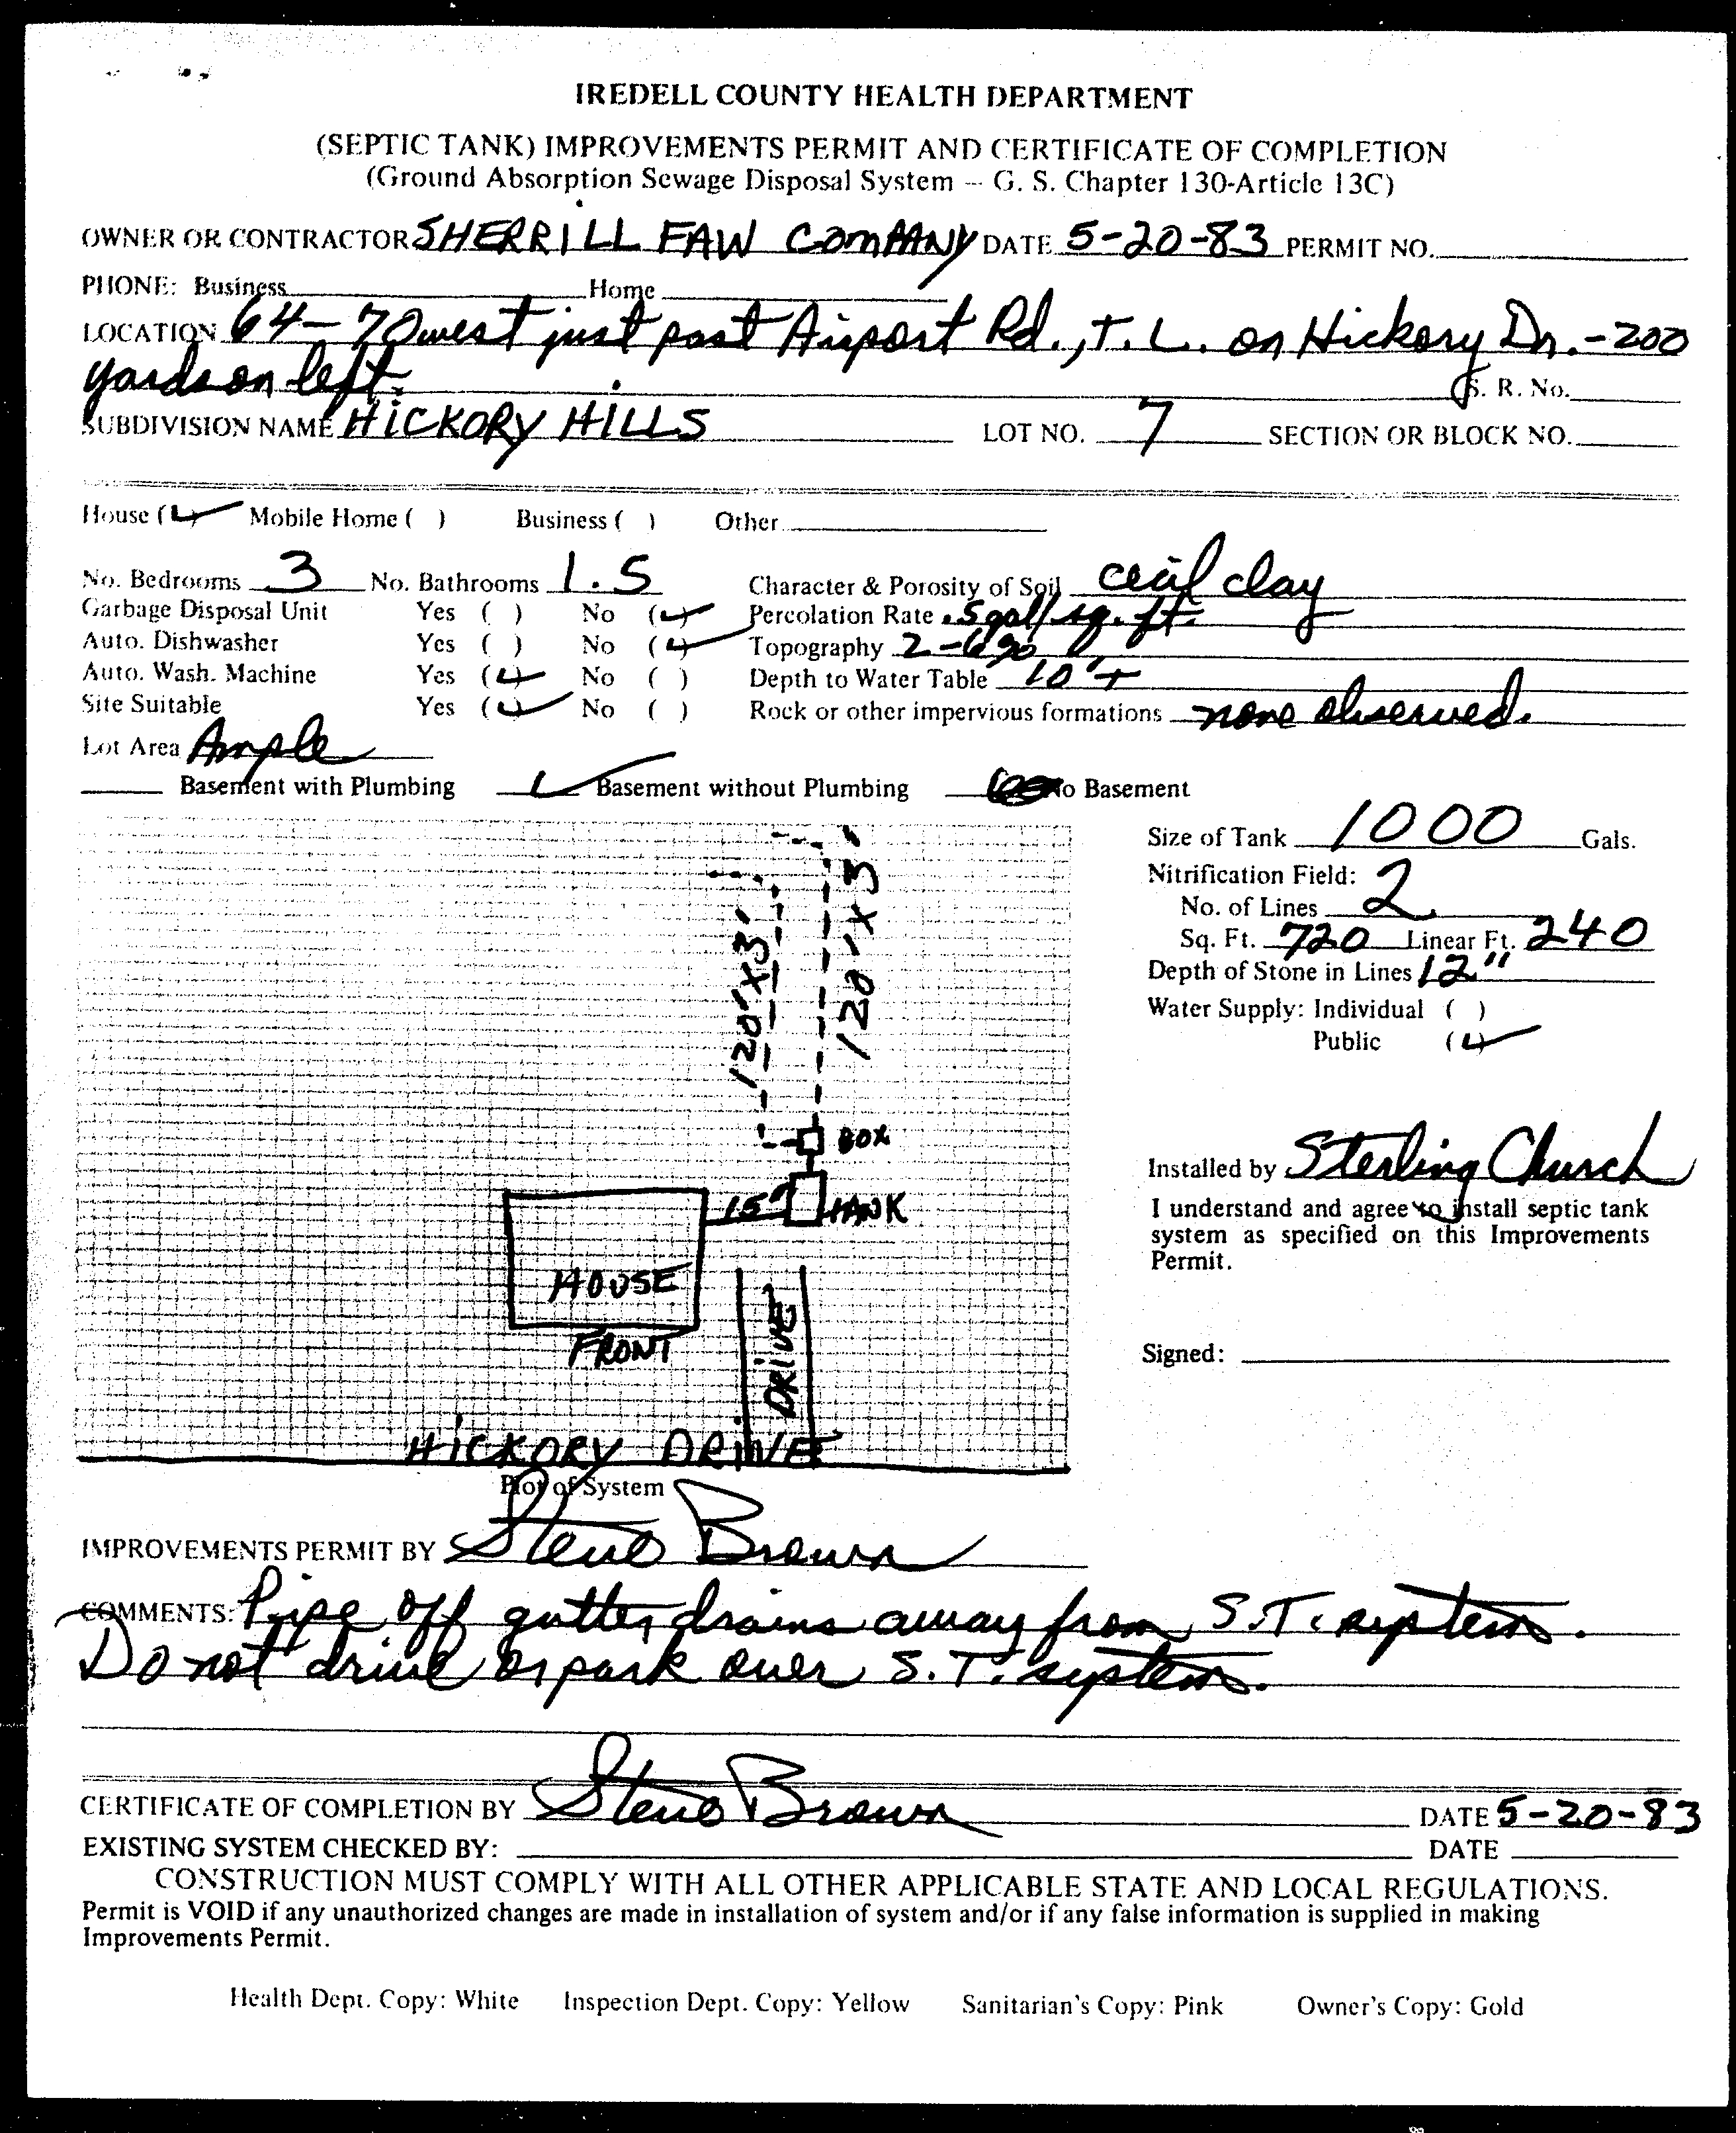 IREDELL COUNTY HEALTH DEPARTMENT
(SEPTIC TANK) IMPROVEMENTS PERMIT AND CERTIFICATE OF COMPLETION
(Ground Absorption Sewage Disposal System -- G. S. Chapter 130-Article 13C)
OWNER OR CONTRACTOR SHERRILL FAW COMPANY DATE 5-20-83 PERMIT NO.
PHONE: Business Home
LOCATION 64-70 west just past Airport Rd., T. L. on Hickory Dr. - 200
yards on left. S. R. No.
SUBDIVISION NAME HICKORY HILLS LOT NO. 7 SECTION OR BLOCK NO.
House (✓) Mobile Home ( ) Business ( ) Other
No. Bedrooms 3 No. Bathrooms 1.5 Character & Porosity of Soil cecil clay
Garbage Disposal Unit Yes ( ) No (✓) Percolation Rate .5 gal/sq. ft.
Auto. Dishwasher Yes ( ) No (✓) Topography 2-6%
Auto. Wash. Machine Yes (✓) No ( ) Depth to Water Table 10'+
Site Suitable Yes (✓) No ( ) Rock or other impervious formations none observed.
Lot Area Ample
Basement with Plumbing ✓ Basement without Plumbing No Basement
Size of Tank 1000 Gals.
Nitrification Field:
No. of Lines 2
Sq. Ft. 720 Linear Ft. 240
Depth of Stone in Lines 12"
Water Supply: Individual ( )
Public (✓)
120'X3'
120'X3'
BOX
15' TANK
HOUSE
FRONT
DRIVE
HICKORY DRIVE
Plot of System
Installed by Sterling Church
I understand and agree to install septic tank
system as specified on this Improvements
Permit.
Signed:
IMPROVEMENTS PERMIT BY Steve Brown
COMMENTS: Pipe off gutter drains away from S.T. system.
Do not drive or park over S.T. system.
CERTIFICATE OF COMPLETION BY Steve Brown DATE 5-20-83
EXISTING SYSTEM CHECKED BY: DATE
CONSTRUCTION MUST COMPLY WITH ALL OTHER APPLICABLE STATE AND LOCAL REGULATIONS.
Permit is VOID if any unauthorized changes are made in installation of system and/or if any false information is supplied in making
Improvements Permit.
Health Dept. Copy: White Inspection Dept. Copy: Yellow Sanitarian's Copy: Pink Owner's Copy: Gold